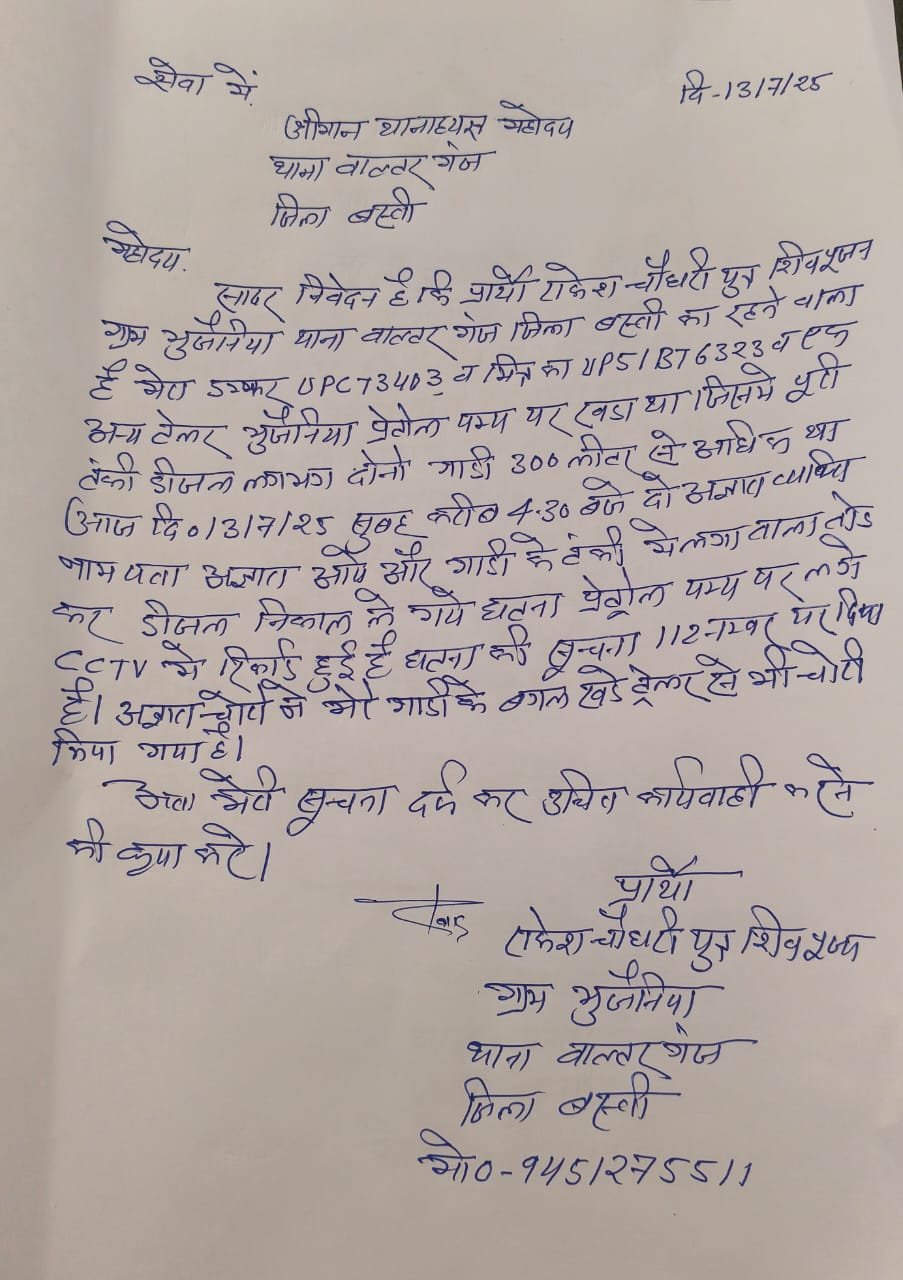 सेवा में,
दि-13/7/25
श्रीमान थानाध्यक्ष महोदय
थाना वाल्टर गंज
जिला बस्ती
महोदय,
सादर निवेदन है कि प्रार्थी राकेश चौधरी पुत्र शिवपूजन
ग्राम भुजैनिया थाना वाल्टर गंज जिला बस्ती का रहने वाला
है मेरा डम्फर UPCT3403 व मित्र का UP51BT6323 व एक
अन्य टेलर भुजैनिया प्रेट्रोल पम्प पर खडा था जिसमे पूरी
टंकी डीजल लगभग दोनो गाडी 300 लीटर से अधिक था
आज दि0 13/7/25 सुबह करीब 4.30 बजे दो अज्ञात व्यक्ति
नाम पता अज्ञात आये और गाडी के टंकी मे लगा ताला तोड
कर डीजल निकाल ले गये घटना प्रेट्रोल पम्प पर लगे
CCTV मे रिकार्ड हुई है घटना की सूचना 112 नम्बर पर दिया
है। अज्ञात चोरो ने मेरे गाडी के बगल खडे ट्रेलर से भी चोरी
किया गया है।
अतः मेरी सूचना दर्ज कर उचित कार्यवाही करने
की कृपा करे।
प्रार्थी
राकेश चौधरी पुत्र शिवपूजन
ग्राम भुजैनिया
थाना वाल्टर गंज
जिला बस्ती
मो0-9451275511